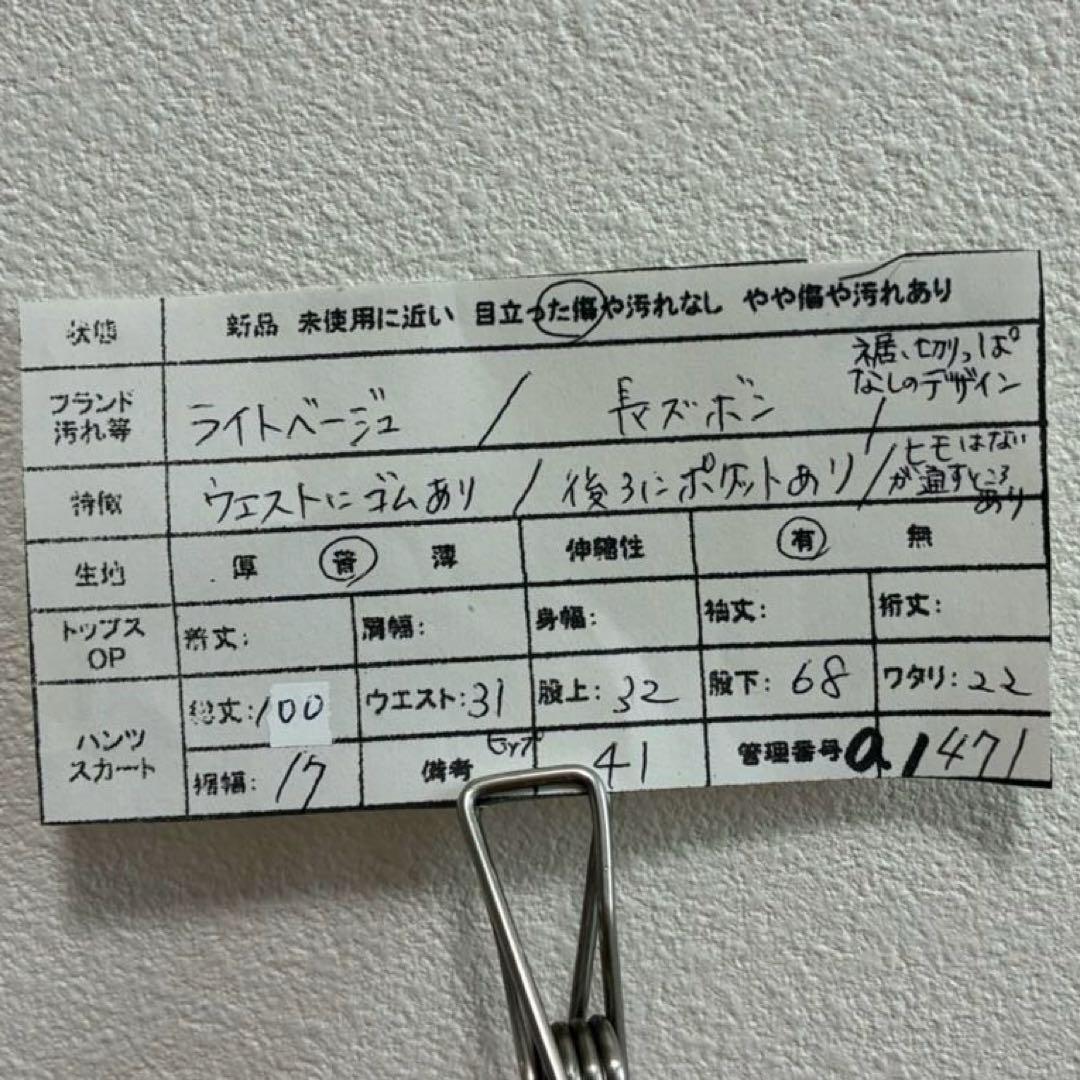 状態 新品 未使用に近い 目立った傷や汚れなし やや傷や汚れあり
ブランド 汚れ等 ライトベージュ / 長ズボン / 裾、切りっぱなしのデザイン
特徴 ウエストにゴムあり / 後ろにポケットあり / ヒモはないが通すところあり
生地 厚 普 薄 伸縮性 有 無
トップス OP 着丈: 肩幅: 身幅: 袖丈: 裄丈:
パンツ スカート 総丈:100 ウエスト:31 股上:32 股下:68 ワタリ:22
裾幅:17 備考 ヒップ 41 管理番号 a.1471